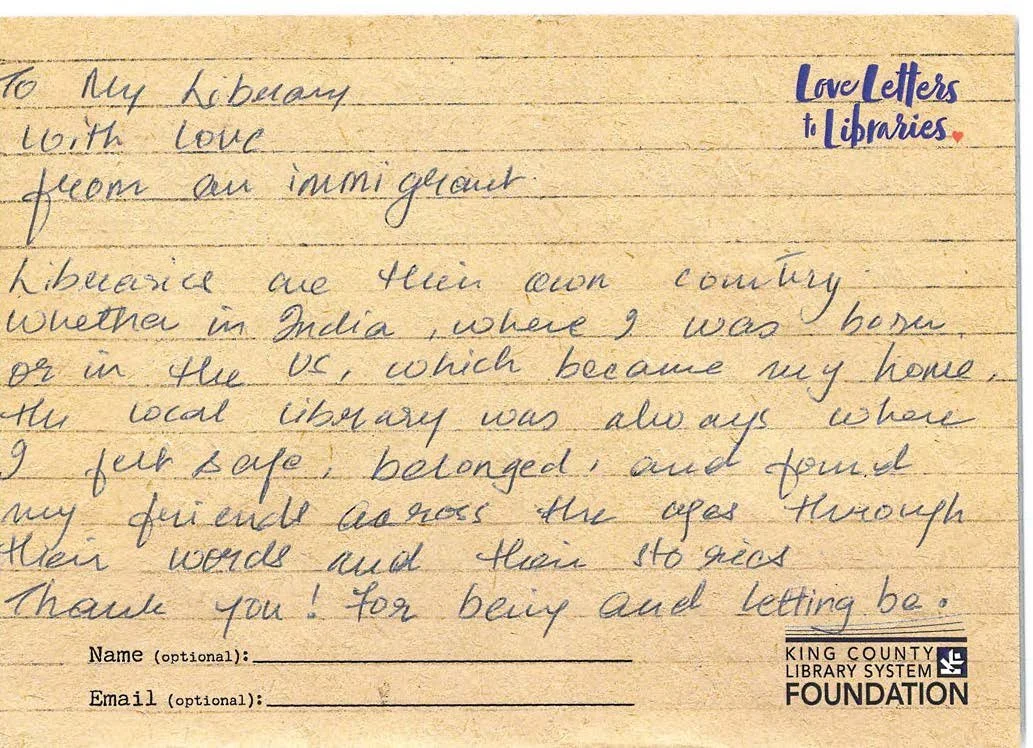 To My Library
with love
from an immigrant.
Love Letters
to Libraries
Libraries are their own country.
whether in India, where I was born.
or in the US, which became my home,
the local library was always where
I felt safe, belonged, and found
my friends across the ages through
their words and their stories
Thank you! For being and letting be.
Name (optional):
Email (optional):
KING COUNTY
LIBRARY SYSTEM
FOUNDATION